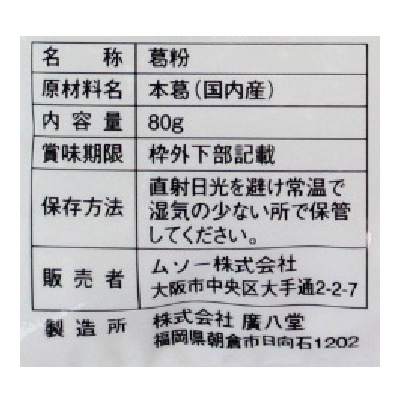 名称 葛粉
原材料名 本葛(国内産)
内容量 80g
賞味期限 枠外下部記載
保存方法 直射日光を避け常温で
湿気の少ない所で保管
してください。
販売者 ムソー株式会社
大阪市中央区大手通2-2-7
製造所 株式会社 廣八堂
福岡県朝倉市日向石1202